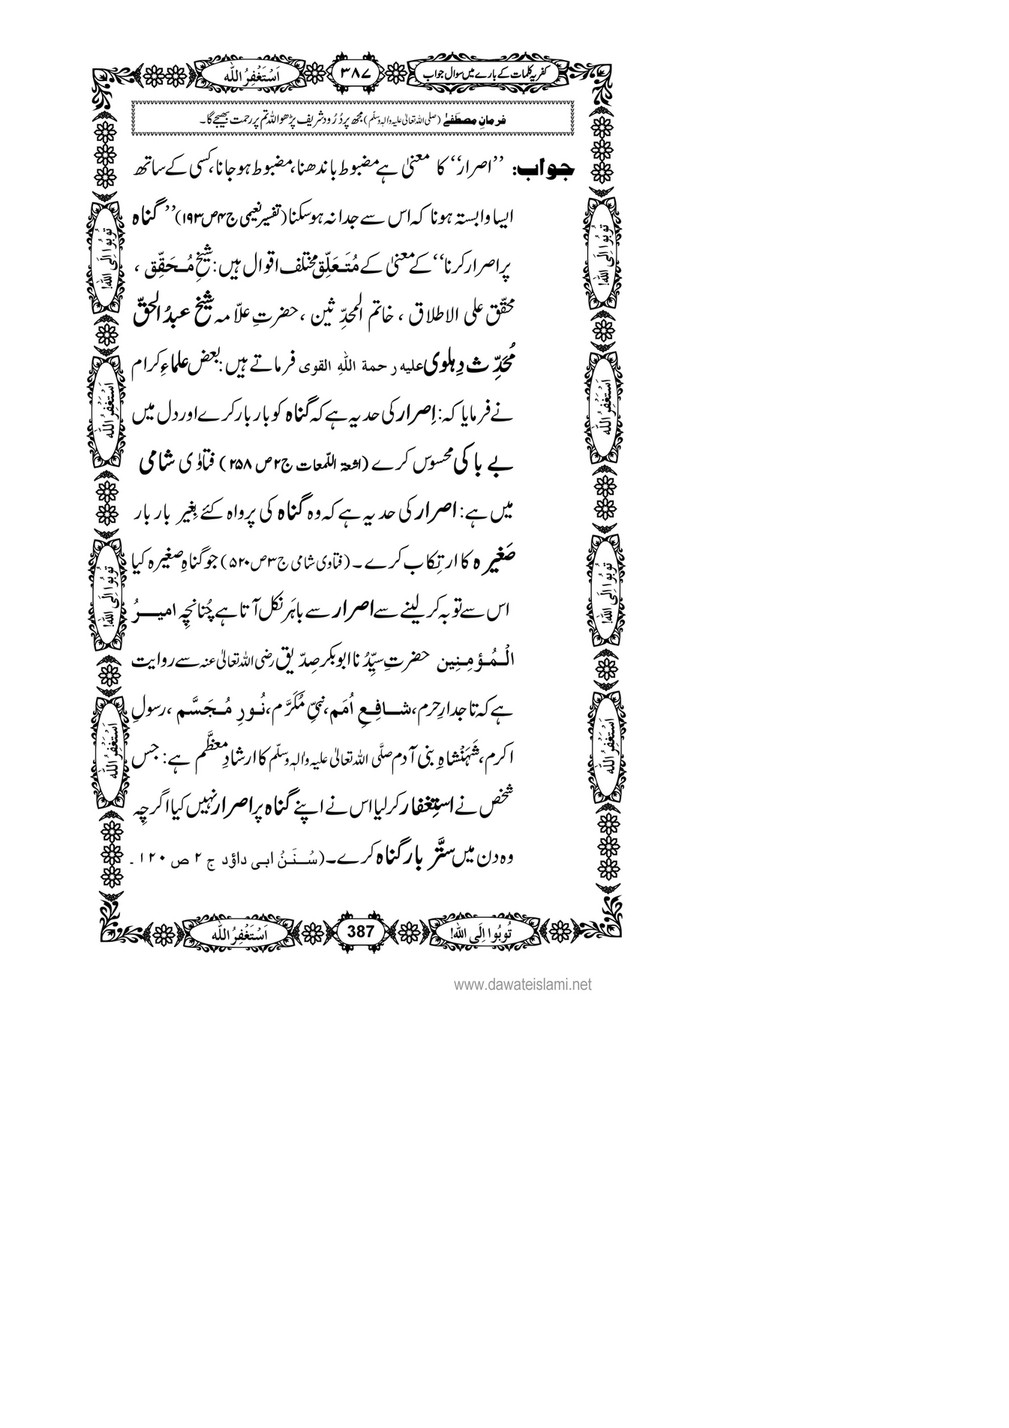 کفریہ کلمات کے بارے میں سوال جواب ۳۸۷ اَسْتَغْفِرُ اللّٰه
فرمانِ مصطفےٰ (صلی اللہ تعالیٰ علیہ واٰلہ وسلّم) مجھ پر دُرُود شریف پڑھو اللہ تم پر رحمت بھیجے گا۔
جواب: ’’اصرار‘‘ کا معنٰی ہے مضبوط باندھنا، مضبوط ہو جانا، کسی کے ساتھ
ایسا وابستہ ہونا کہ اس سے جدا نہ ہو سکنا (تفسیر نعیمی ج۴ ص۱۹۳) ’’گناہ
پر اصرار کرنا‘‘ کے معنٰی کے مُتَعَلِّق مختلف اقوال ہیں: شیخِ مُحَقِّق ،
محقّق علی الاطلاق ، خاتم المحدِّثین ، حضرتِ علّامہ شیخ عبدُ الحقّ
مُحَدِّث دِہلوی علیہ رحمۃ اللہِ القوی فرماتے ہیں: بعض علماءِ کرام
نے فرمایا کہ: اِصرار کی حد یہ ہے کہ گناہ کو بار بار کرے اور دل میں
بے باکی محسوس کرے (اشعۃ اللّمعات ج۲ ص ۲۵۸) فتاوٰی شامی
میں ہے: اصرار کی حد یہ ہے کہ وہ گناہ کی پرواہ کئے بِغیر بار بار
صَغیرہ کا ارتِکاب کرے ۔ (فتاوی شامی ج۳ ص۵۲۰) جو گناہِ صغیرہ کیا
اس سے توبہ کر لینے سے اصرار سے باہَر نکل آتا ہے چُنانچِہ امیرُ
الْمُؤمِنِین حضرتِ سیِّدُنا ابو بکر صِدّیق رضی اللہ تعالیٰ عنہ سے روایت
ہے کہ تاجدارِ حرم، شافِعِ اُمَم، نبیِّ مُکَرَّم، نُورِ مُجَسَّم ، رسولِ
اکرم، شَہَنْشاہِ بنی آدم صلَّی اللہ تعالیٰ علیہ واٰلہٖ وسلّم کا ارشادِ معظَّم ہے: جس
شخص نے استِغفار کر لیا اس نے اپنے گناہ پر اصرار نہیں کیا اگرچِہ
وہ دن میں ستَّر بار گناہ کرے۔ (سُنَنُ ابی داؤد ج ۲ ص ۱۲۰ ۔
تُوبُوا اِلَی اللّٰه!
اَسْتَغْفِرُ اللّٰه
تُوبُوا اِلَی اللّٰه!
اَسْتَغْفِرُ اللّٰه
تُوبُوا اِلَی اللّٰه!
اَسْتَغْفِرُ اللّٰه
تُوبُوا اِلَی اللّٰه!
اَسْتَغْفِرُ اللّٰه
تُوبُوا اِلَی اللّٰه! 387 اَسْتَغْفِرُ اللّٰه
www.dawateislami.net